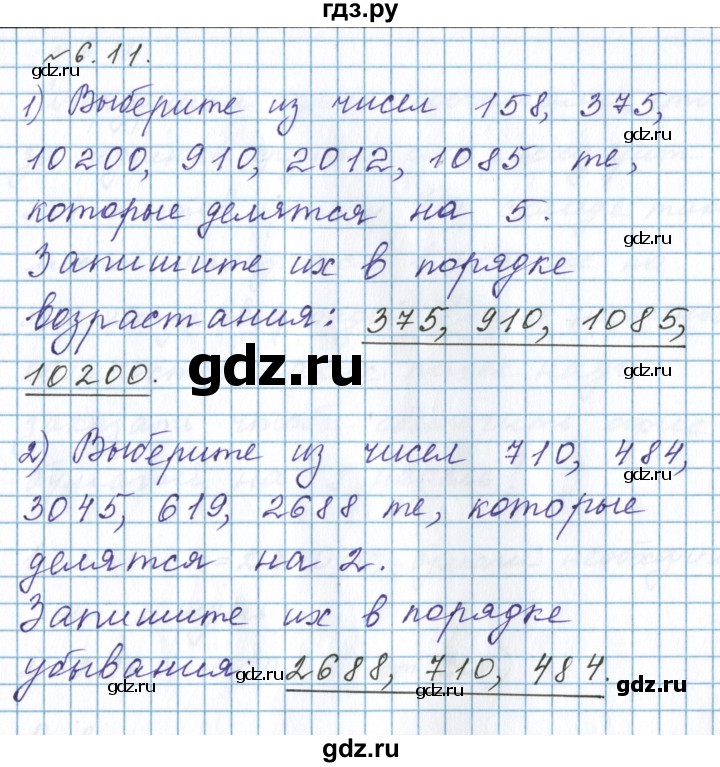 гдз.ру
№ 6.11.
gdz.ru
1) Выберите из чисел 158, 375,
gdz.ru
10200, 910, 2012, 1085 те,
которые делятся на 5.
gdz.ru
Запишите их в порядке
возрастания: 375, 910, 1085,
10200.
gdz.ru
gdz.ru
2) Выберите из чисел 710, 484,
gdz.ru
3045, 619, 2688 те, которые
делятся на 2.
Запишите их в порядке
убывания: 2688, 710, 484.
gdz.ru
gdz.ru
gdz.ru
gdz.ru
gdz.ru